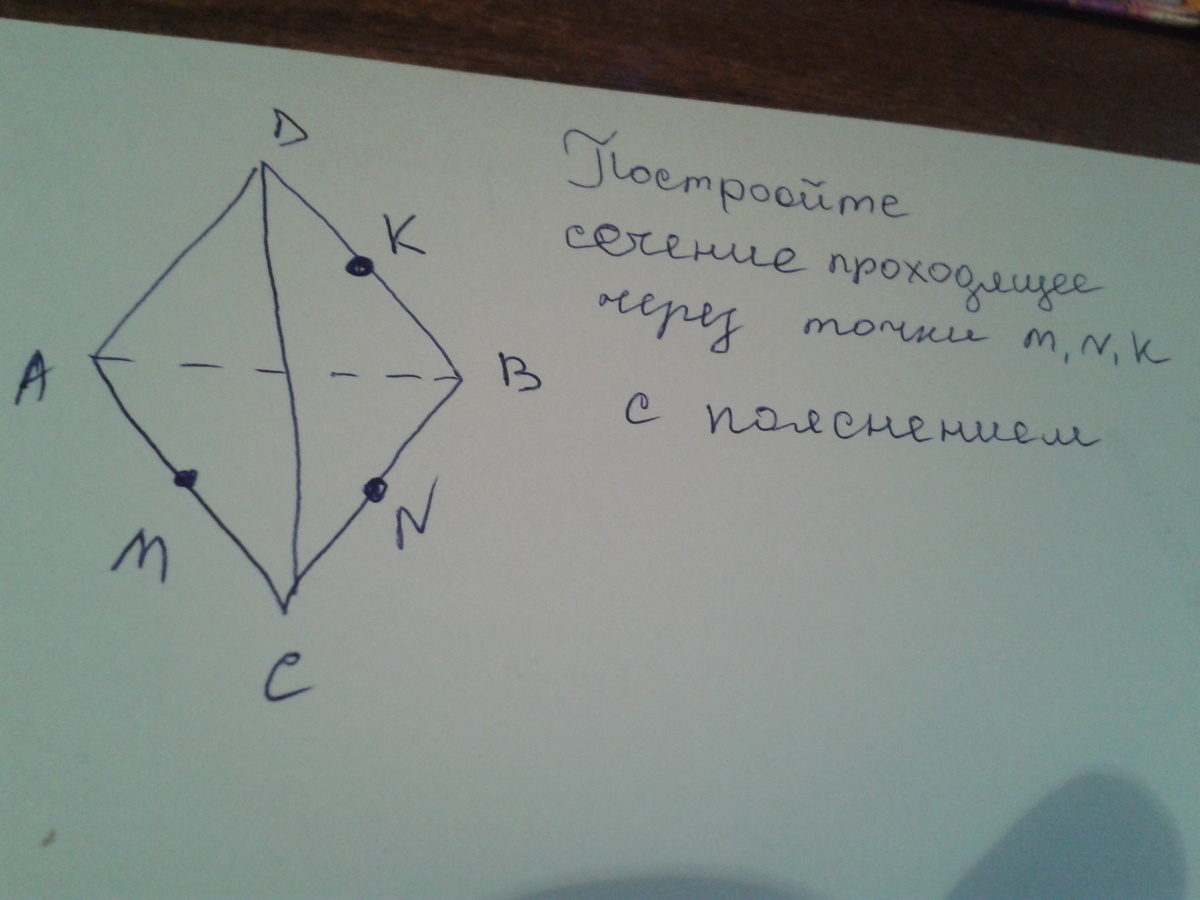 D
Постройте
K
сечение проходящее
через точки M, N, K
A
B
с пояснением
M
N
C